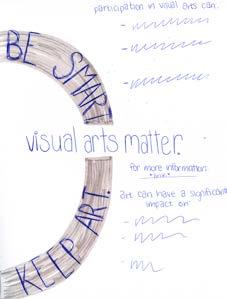 participation in visual arts can:
BE SMART
visual arts matter.
for more information:
art can have a significant
impact on:
KEEP ART.